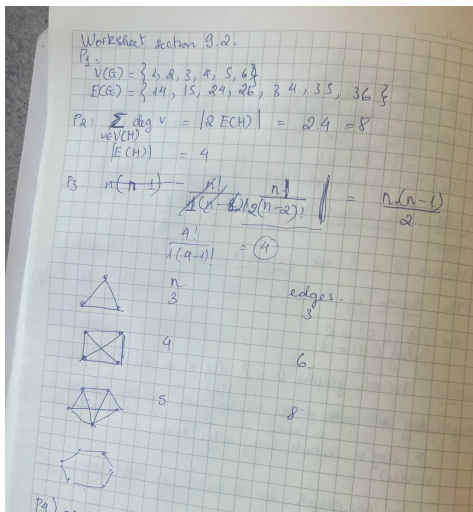 Worksheet section 9.2.
P1.
V(G) = {1, 2, 3, 4, 5, 6}
E(G) = {14, 15, 24, 26, 34, 35, 36}
P2: Σ deg v = |2 E(H)| = 2.4 = 8
v∈V(H)
|E(H)| = 4
P3 n(n-1) n! / 2(n-2)! = n(n-1) / 2
4! / 1(4-1)! = 4
n edges.
3 3
4 6.
5 8
P4)